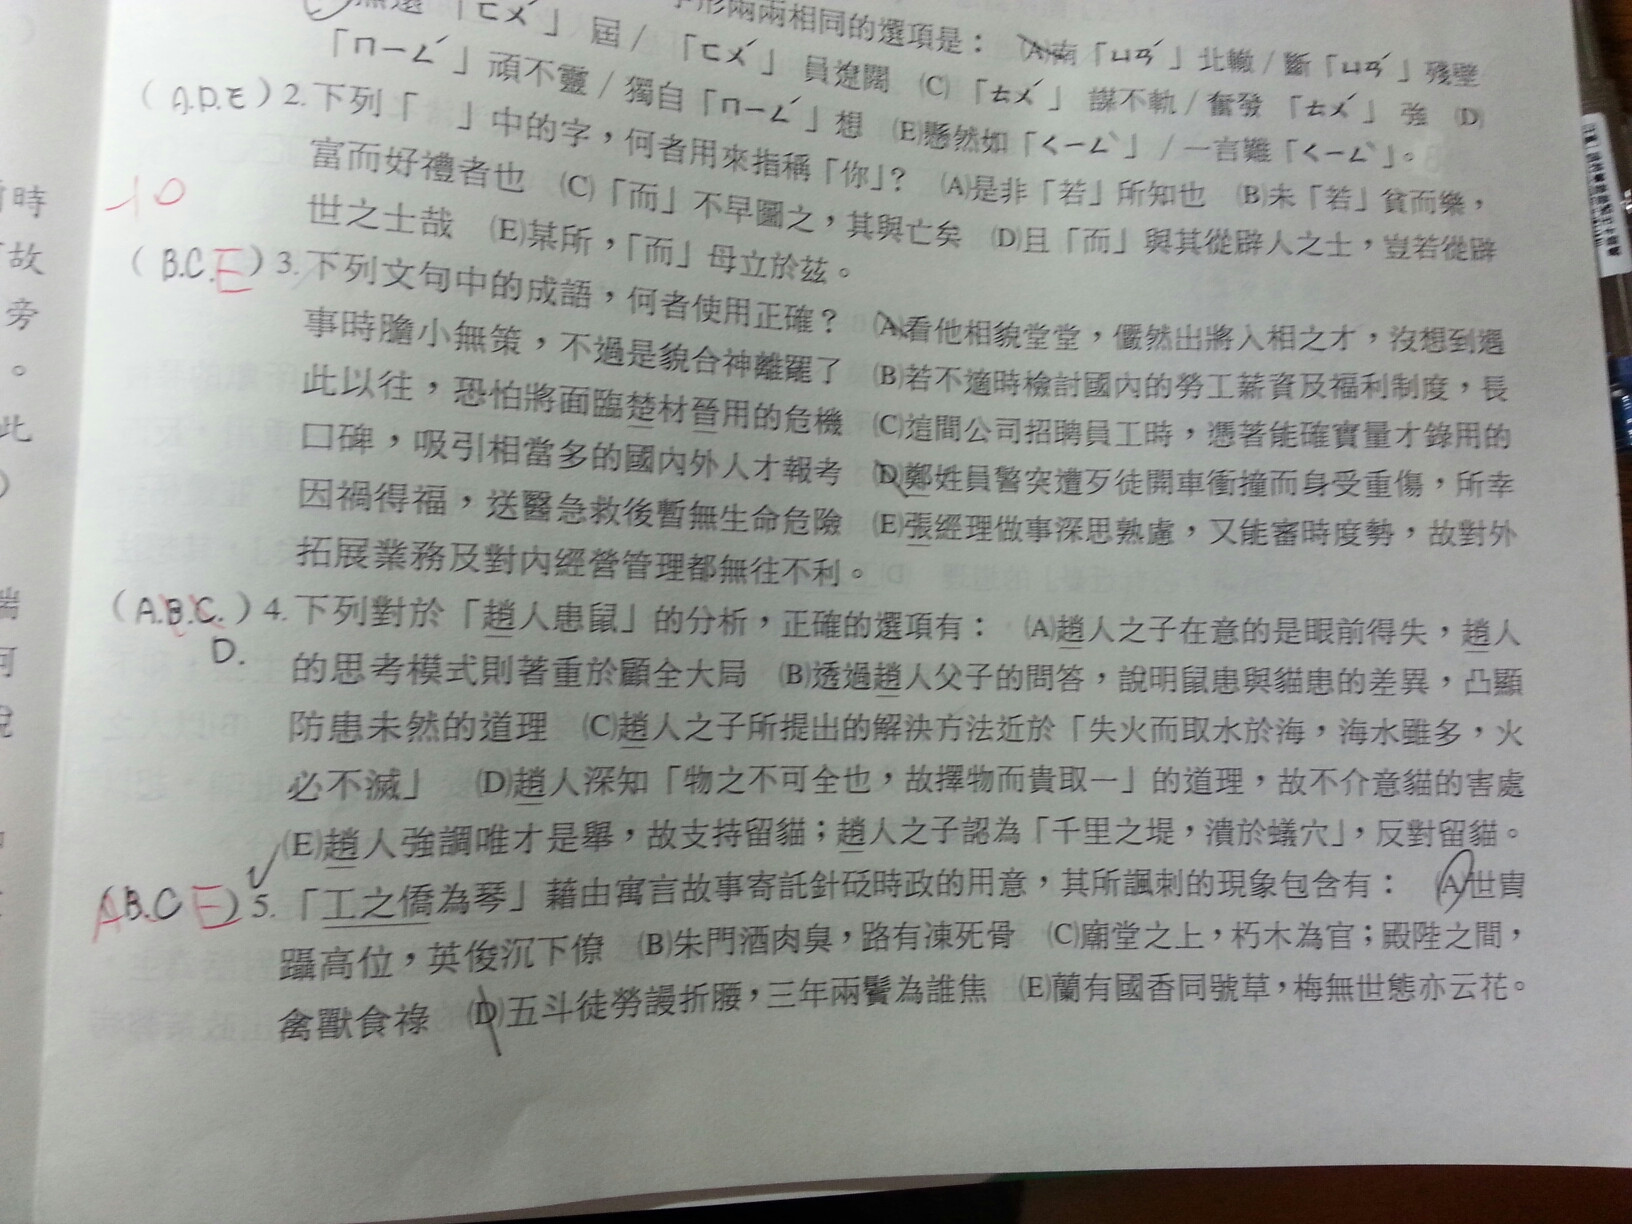 「ㄈㄨˊ」屆/「ㄈㄨˊ」員遼闊 (C)「ㄊㄨˊ」謀不軌/奮發「ㄊㄨˊ」強 (D)
兩兩相同的選項是: (A)南「ㄩㄢˊ」北轍/斷「ㄩㄢˊ」殘壁
「ㄇㄧㄥˊ」頑不靈/獨自「ㄇㄧㄥˊ」想 (E)懸然如「ㄑㄧㄥˋ」/一言難「ㄑㄧㄥˋ」。
(A.D.E)2.下列「 」中的字,何者用來指稱「你」? (A)是非「若」所知也 (B)未「若」貧而樂,
富而好禮者也 (C)「而」不早圖之,其與亡矣 (D)且「而」與其從辟人之士,豈若從辟
世之士哉 (E)某所,「而」母立於茲。
-10
(B.C.E)3.下列文句中的成語,何者使用正確? (A)看他相貌堂堂,儼然出將入相之才,沒想到遇
事時膽小無策,不過是貌合神離罷了 (B)若不適時檢討國內的勞工薪資及福利制度,長
此以往,恐怕將面臨楚材晉用的危機 (C)這間公司招聘員工時,憑著能確實量才錄用的
口碑,吸引相當多的國內外人才報考 (D)鄭姓員警突遭歹徒開車衝撞而身受重傷,所幸
因禍得福,送醫急救後暫無生命危險 (E)張經理做事深思熟慮,又能審時度勢,故對外
拓展業務及對內經營管理都無往不利。
(A.B.C.)4.下列對於「趙人患鼠」的分析,正確的選項有: (A)趙人之子在意的是眼前得失,趙人
D.
的思考模式則著重於顧全大局 (B)透過趙人父子的問答,說明鼠患與貓患的差異,凸顯
防患未然的道理 (C)趙人之子所提出的解決方法近於「失火而取水於海,海水雖多,火
必不滅」 (D)趙人深知「物之不可全也,故擇物而貴取一」的道理,故不介意貓的害處
(E)趙人強調唯才是舉,故支持留貓;趙人之子認為「千里之堤,潰於蟻穴」,反對留貓。
AB.CE)5.「工之僑為琴」藉由寓言故事寄託針砭時政的用意,其所諷刺的現象包含有: (A)世冑
躡高位,英俊沉下僚 (B)朱門酒肉臭,路有凍死骨 (C)廟堂之上,朽木為官;殿陛之間,
禽獸食祿 (D)五斗徒勞謾折腰,三年兩鬢為誰焦 (E)蘭有國香同號草,梅無世態亦云花。
時
故
旁
。
此